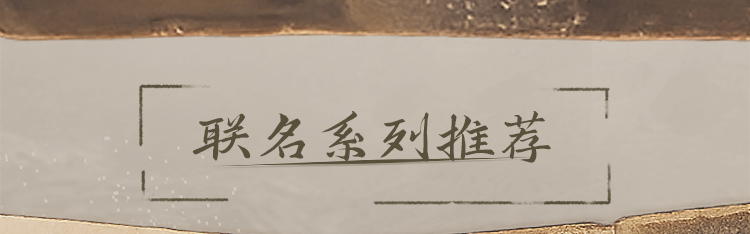 联名系列推荐